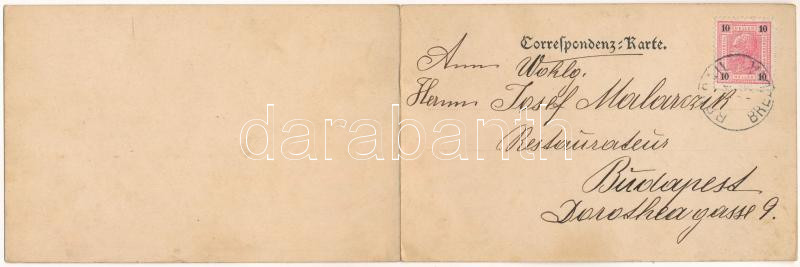 Correspondenz-Karte.
10 10
10 10
An Wohlg.
Herrn Josef Malarczik
Restaurateur
Budapest
Dorotheagasse 9.
darabanth